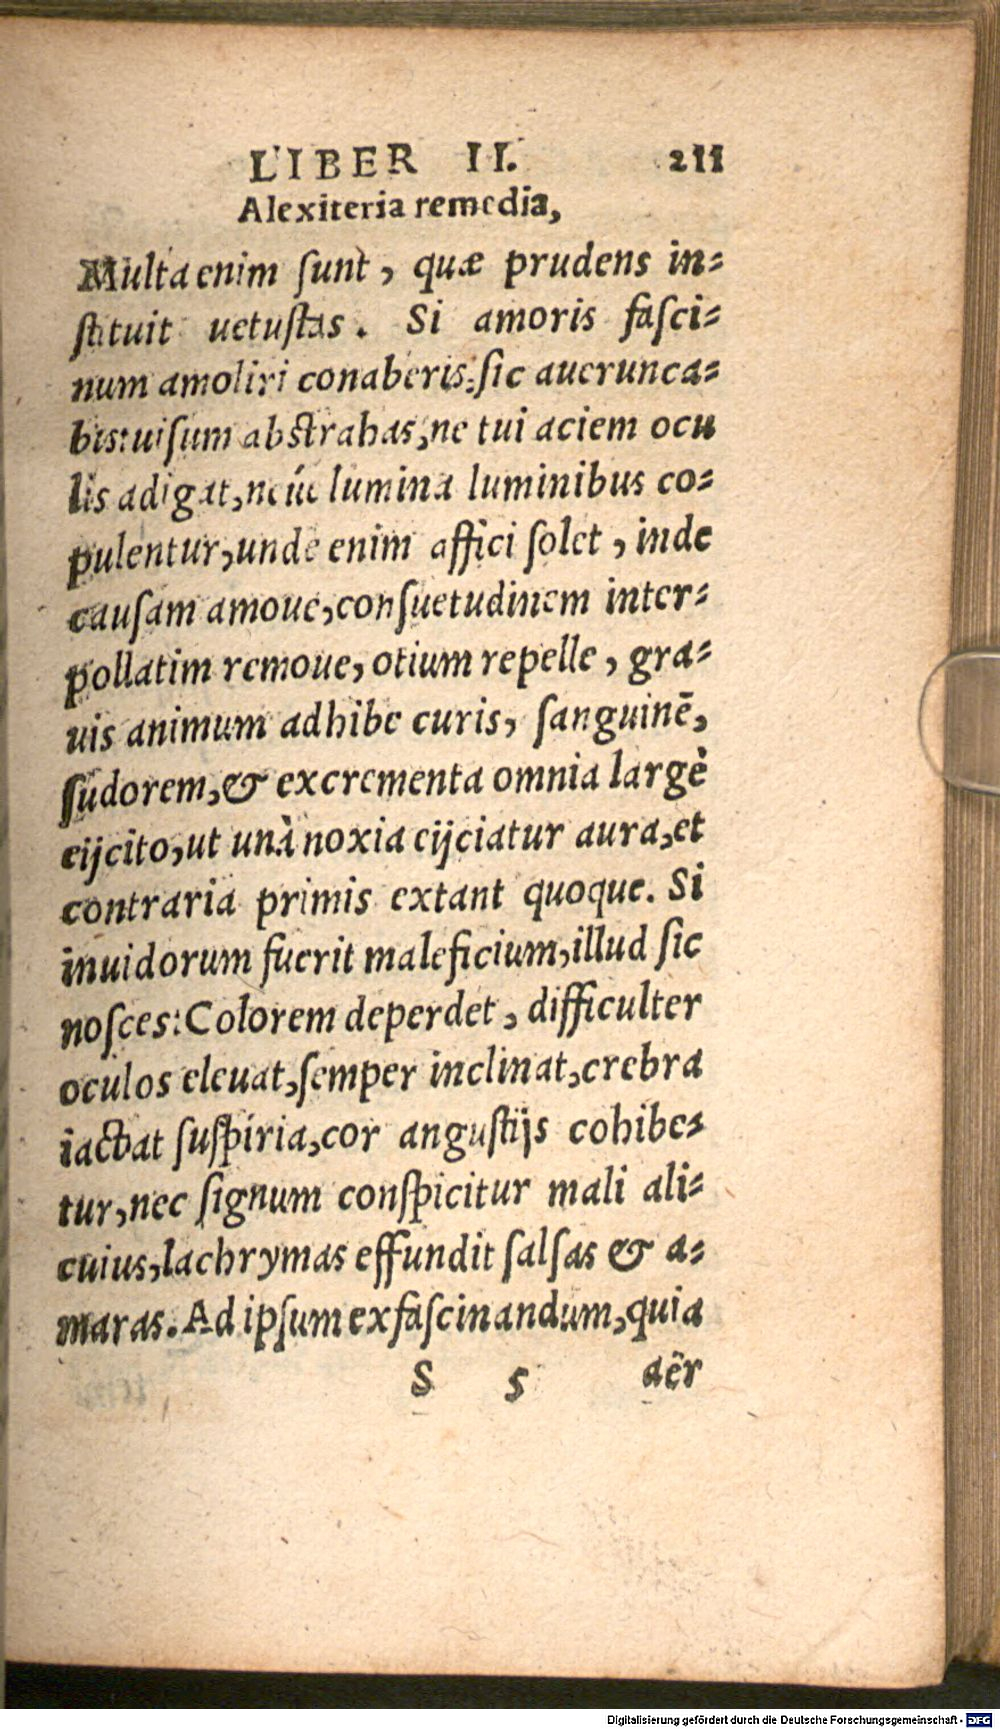 LIBER II. 211
Alexiteria remedia,
Multa enim ſunt, quæ prudens in-
ſtituit uetuſtas. Si amoris faſci-
num amoliri conaberis: ſic auerunca-
bis: uiſum abſtrahas, ne tui aciem ocu
lis adigat, neúe lumina luminibus co-
pulentur, unde enim affici ſolet, inde
cauſam amoue, conſuetudinem inter-
pollatim remoue, otium repelle, gra-
uis animum adhibe curis, ſanguinē,
ſudorem, & excrementa omnia largè
eijcito, ut unà noxia eijciatur aura, et
contraria primis extant quoque. Si
inuidorum fuerit maleficium, illud ſic
noſces: Colorem deperdet, difficulter
oculos eleuat, ſemper inclinat, crebra
iactat ſuſpiria, cor anguſtijs cohibe-
tur, nec ſignum conſpicitur mali ali-
cuius, lachrymas effundit ſalſas & a-
maras. Ad ipſum exfaſcinandum, quia
S 5 aër
Digitalisierung gefördert durch die Deutsche Forschungsgemeinschaft - DFG